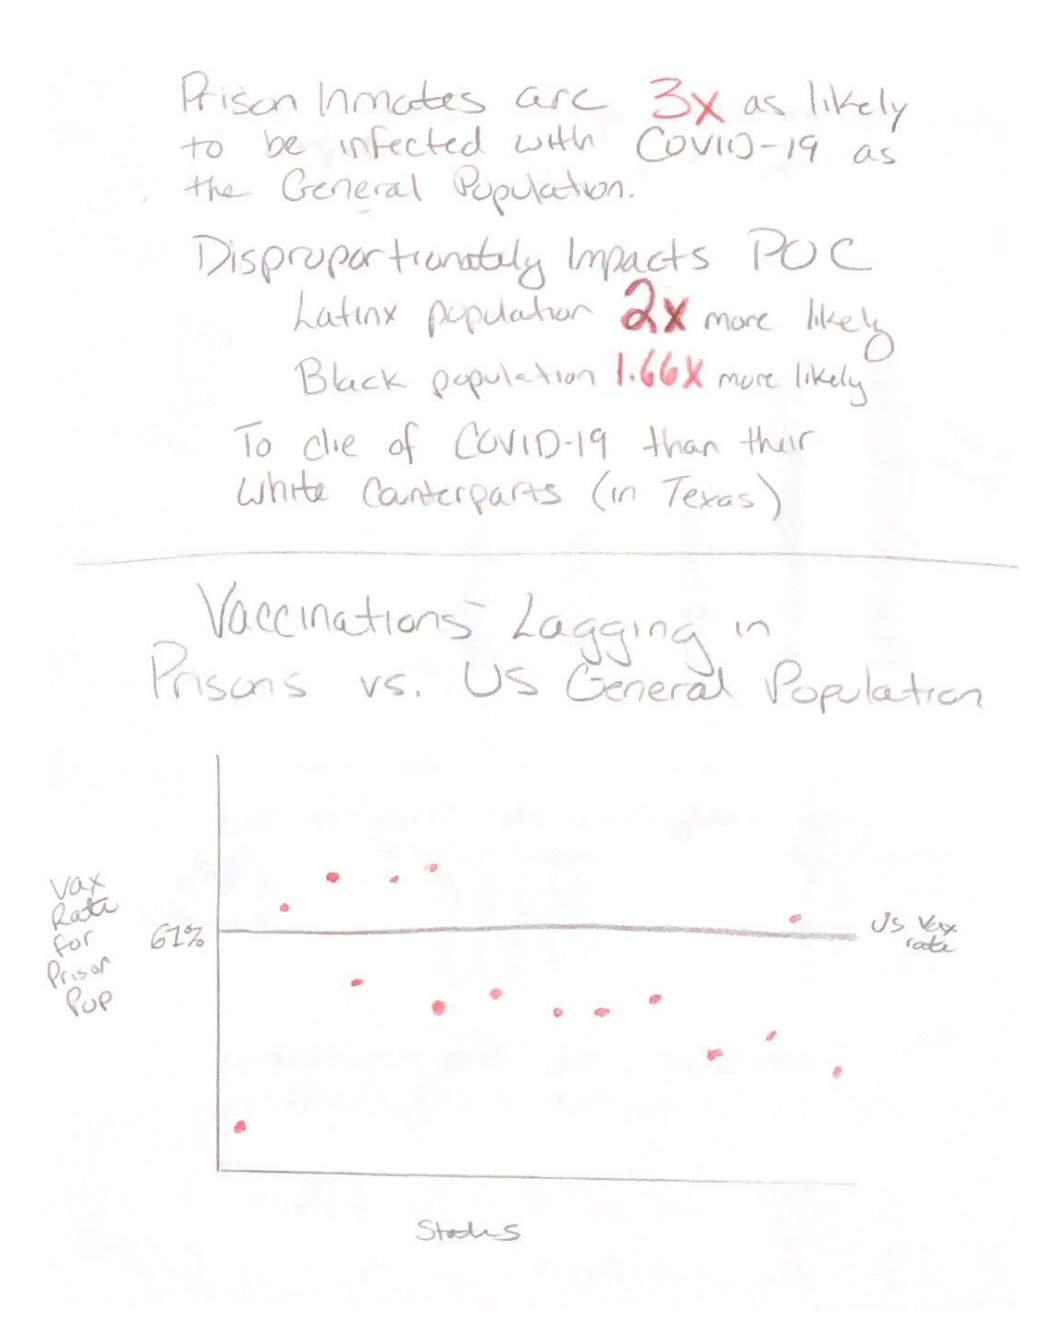 Prison Inmates are 3x as likely
to be infected with COVID-19 as
the General Population.
Disproportionately Impacts POC
Latinx population 2x more likely
Black population 1.66x more likely
To die of COVID-19 than their
White Counterparts (in Texas)
Vaccinations Lagging in
Prisons vs. US General Population
Vax
Rate
for
Prison
Pop
61%
US Vax
rate
States